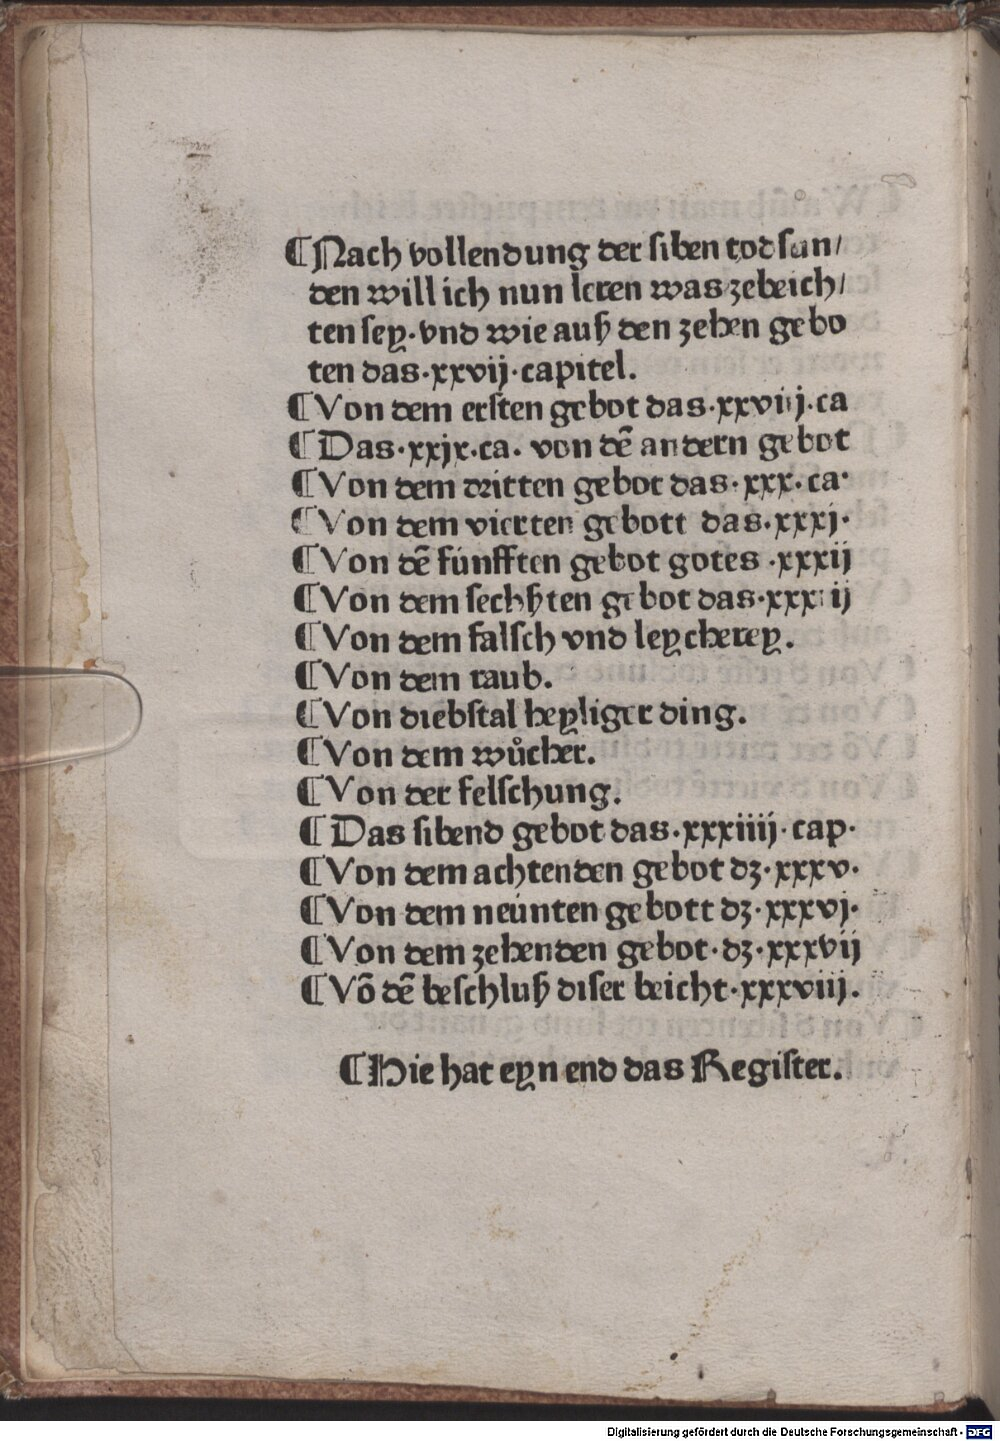 ¶Nach vollendung der siben tod sun/
den will ich nun leren was zebeich/
ten sey·vnd wie auß den zehen gebo
ten das·xxvij·capitel.
¶Von dem ersten gebot das·xxviij·ca
¶Das·xxjx·ca· von dē andern gebot
¶Von dem dritten gebot das·xxx·ca·
¶Von dem vierten gebott das·xxxj·
¶Von dē fúnfften gebot gotes ·xxxij
¶Von dem sechßten gebot das·xxxiij
¶Von dem falsch vnd leycherey.
¶Von dem raub.
¶Von diebstal heyliger ding.
¶Von dem wůcher.
¶Von der felschung.
¶Das sibend gebot das·xxxiiij·cap·
¶Von dem achtenden gebot dz·xxxv·
¶Von dem neúnten gebott dz·xxxvj·
¶Von dem zehenden gebot·dz·xxxvij
¶Võ dē beschluß diser beicht·xxxviij·
¶Hie hat eyn end das Register.
Digitalisierung gefördert durch die Deutsche Forschungsgemeinschaft - DFG